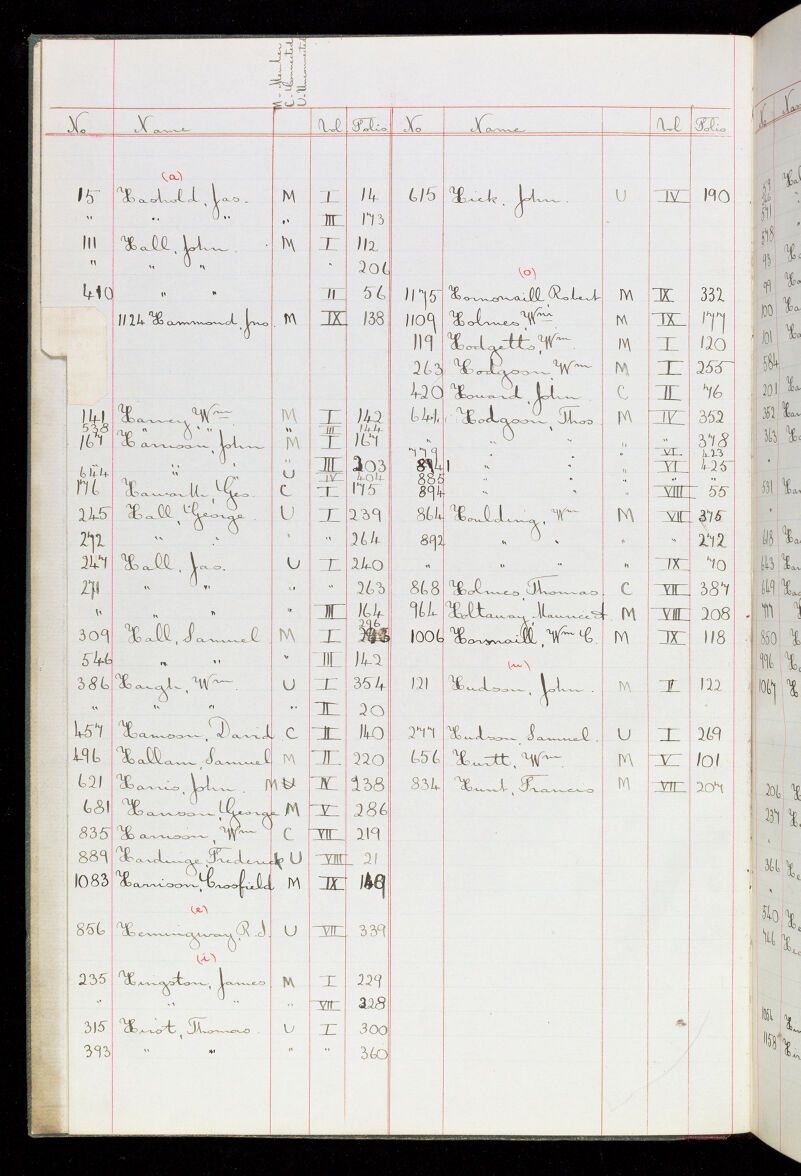 M - Member
C. Connected
U. Unconnected
No Name Vol Folio No Name Vol Folio
(a)
15 Hashold, Jas. M I 14 615 Hick, John. U IV 190
" " " " III 173
111 Hall, John. M I 112
" " " " 206
(o)
410 " " II 56 1175 Hornsnaill Robert M IX 332
1124 Hammond, Jno. M IX 138 1109 Holmes, Wm M IX 177
119 Hodgetts, Wm M I 120
263 Hodgson, Wm M I 255
420 Howard, John C II 76
141 Harvey, Wm M I 142 644 Hodgson, Thos. M IV 352
538 " " " III 144
167 Harrison, John M I 167 " " " " " 378
779 " " " VI 423
" " " " III 203 8941 " " " VI 425
644 " " U IV 404 885 " " " " "
176 Haworth, Geo. C I 175 894 " " " VIII 55
245 Hall, George. U I 239 864 Houlding, Wm M VII 375
272 " " " " 264 892 " " " " 272
247 Hall, Jas. U I 240 " " " " IX 70
271 " " " " 263 868 Holmes, Thomas. C VII 387
" " " " III 164 964 Holtaway, Maurice M VIII 208
309 Hall, Samuel M I 296 1006 Hornsnaill, Wm C. M IX 118
546 " " " III 142
(u)
386 Haigh, Wm. U I 354 121 Hudson, John. M I 122
" " " " II 20
457 Hamson, David C II 140 277 Hudson Samuel. U I 269
496 Hallam, Samuel M II 220 656 Hurtt, Wm. M V 101
621 Harris, John. M U IV 238 834 Hunt, Francis M VII 207
681 Hanson, George M V 286
835 Harrison, Wm C VII 219
889 Hardinge, Frederick U VIII 21
1083 Harrison, Crosfield M IX 149
(e)
856 Hemingway, R. J. U VII 339
(i)
235 Hingston, James M I 229
" " " " VII 328
315 Hirst, Thomas. U I 300
393 " " " " 360